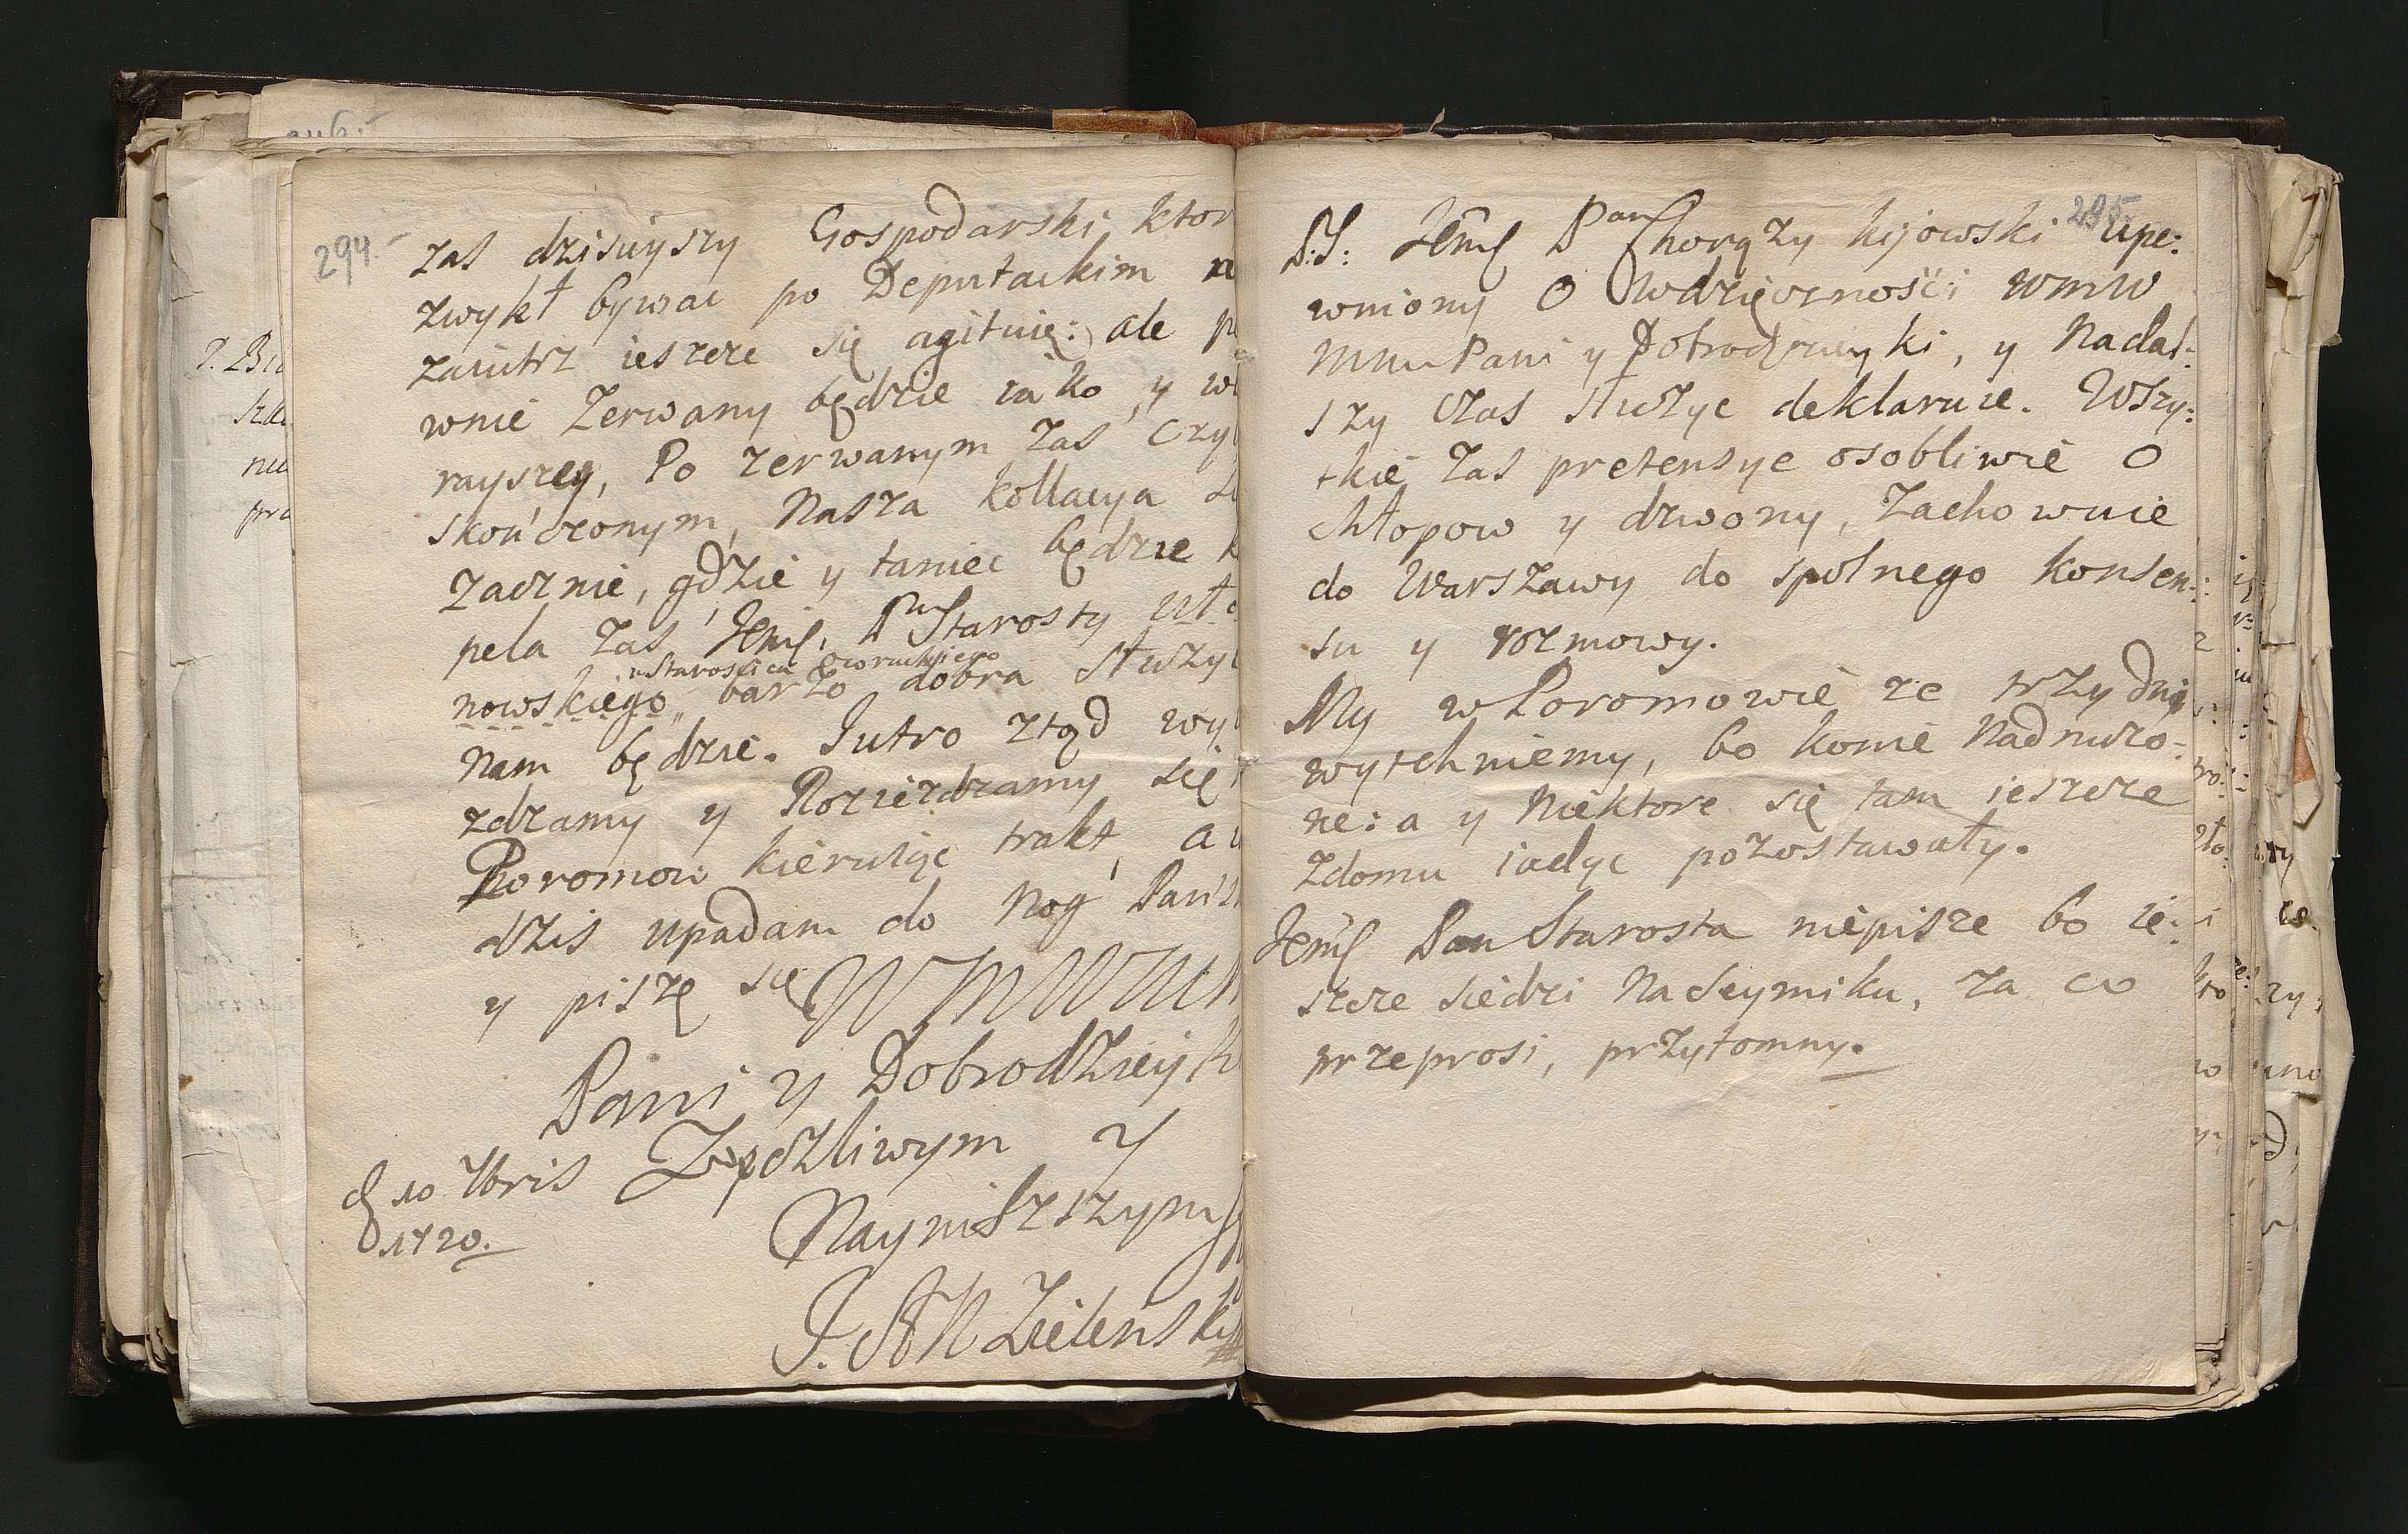 294.
zas dzisieyszy Gospodarski ktor
zwykł bywac po Deputackim
zaiutrz ieszcze się agituie: ale
wnie zerwany będzie iako y
rayszey, Po zerwanym zas czy
skończonym, Nasza kollacya
zacznie, gdzie y taniec będzie
pela zas Jemsc. Pn Starosty
u Starościca Owruckiego
nowskiego barzo dobra służy
nam będzie. Iutro ztąd wy
zdzamy y Rozieżdzamy się
Poromow kieruiąc trakt, a
dzis upadam do Nog Pańs
y piszę się WMW
Pani y Dobrodzieyk
Zyczliwym y
d 10 7bris
1720.
Nayniższszym
J. St N Zielenski
295
P.S: Jemsc Pan Chorąży kijowski upe:
wniony O Wdzięcznośći WMW
Mnie Pani y Dobrodzieyki, y Nadal-
szy Czas służyc deklaruie. Wszy:
tkie zas pretensye osobliwie O
chłopow y dzwony, Zachowuie
do Warszawy do spolnego konsen-
su y rozmowy.
My w Poromowie ze trzy dni
wytchniemy, bo konie Nadnużo-
ne: a y Niektore się tam ieszcze
zdomu iadąc pozostawały.
Jemsc Pan Starosta niepisze bo ie:
szcze siedzi Na Seymiku, Za co
przeprosi, przytomny.